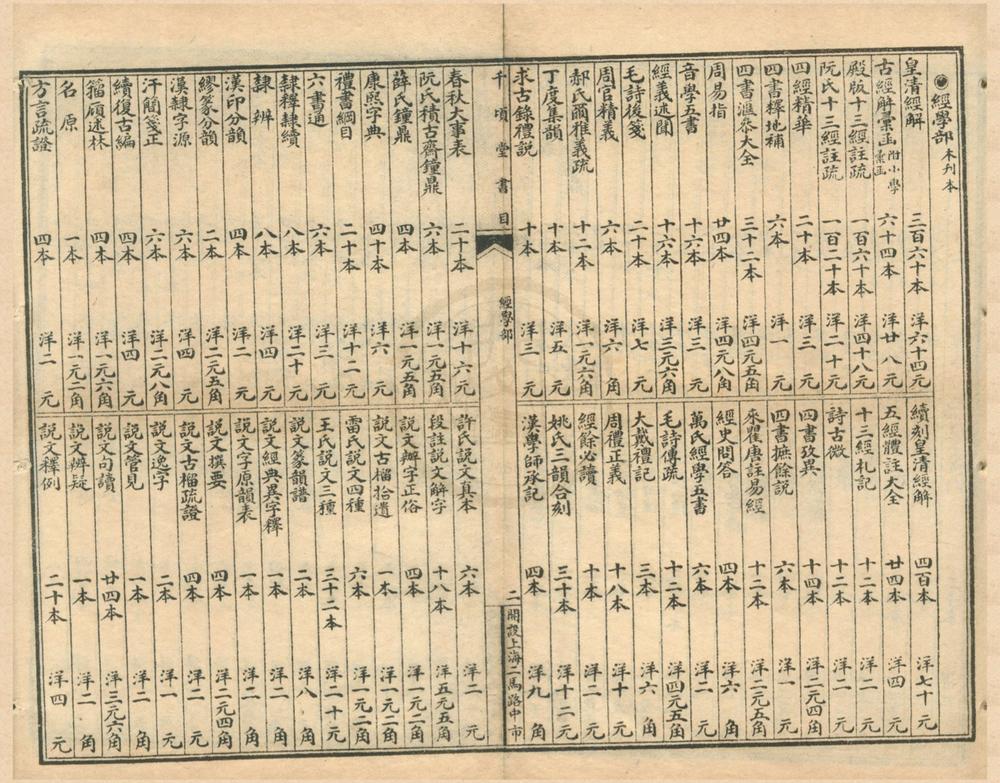 經學部 木刊本
皇清經解 三百六十本 洋六十四元
古經解彙函 附小學彙函 六十四本 洋廿八元
殿版十三經註疏 一百六十本 洋四十八元
阮氏十三經註疏 一百二十本 洋二十元
四經精華 二十本 洋三元
四書釋地補 六本 洋一元
四書滙叅大全 三十二本 洋四元五角
周易指 廿四本 洋四元八角
音學五書 十六本 洋三元
經義述聞 十六本 洋三元六角
毛詩後箋 二十本 洋七元
周官精義 六本 洋六角
郝氏爾雅義疏 十二本 洋一元六角
丁度集韻 十本 洋五元
求古錄禮説 十本 洋三元
續刻皇清經解 四百本 洋七十元
五經體註大全 廿四本 洋四元
十三經札記 十二本 洋二元
詩古微 十二本 洋一元
四書攷異 十四本 洋二元四角
四書摭餘説 六本 洋一元
來瞿唐註易經 十二本 洋二元五角
經史問答 四本 洋六角
萬氏經學五書 六本 洋二元
毛詩傳疏 十二本 洋四元五角
大戴禮記 三本 洋六角
周禮正義 十八本 洋十元
經餘必讀 十本 洋二元
姚氏三韻合刻 三十本 洋十二元
漢學師承記 四本 洋九角
千頃堂書目
經學部
二
開設上海二馬路中市
春秋大事表 二十本 洋十六元
阮氏積古齋鐘鼎 六本 洋一元五角
薛氏鐘鼎 四本 洋一元五角
康熙字典 四十本 洋六元
禮書綱目 二十本 洋十二元
六書通 六本 洋三元
隸釋隸續 八本 洋二十元
隸辨 八本 洋四元
漢印分韻 四本 洋二元
繆篆分韻 二本 洋二元五角
漢隸字源 六本 洋四元
汗簡箋正 六本 洋二元八角
續復古編 四本 洋四元
籀廎述林 四本 洋一元六角
名原 一本 洋一元二角
方言疏證 四本 洋二元
許氏説文真本 六本 洋二元
段註説文解字 十八本 洋五元五角
説文辨字正俗 四本 洋一元二角
説文古橊拾遺 一本 洋一元二角
雷氏説文四種 六本 洋一元二角
王氏説文三種 三十二本 洋二十元
説文篆韻譜 二本 洋八角
説文經典異字釋 一本 洋二角
説文字原韻表 一本 洋二角
説文撰要 四本 洋二元四角
説文古橊疏證 四本 洋二元
説文逸字 二本 洋一元
説文管見 一本 洋二角
説文句讀 廿四本 洋三元六角
説文辨疑 一本 洋二角
説文釋例 二十本 洋四元